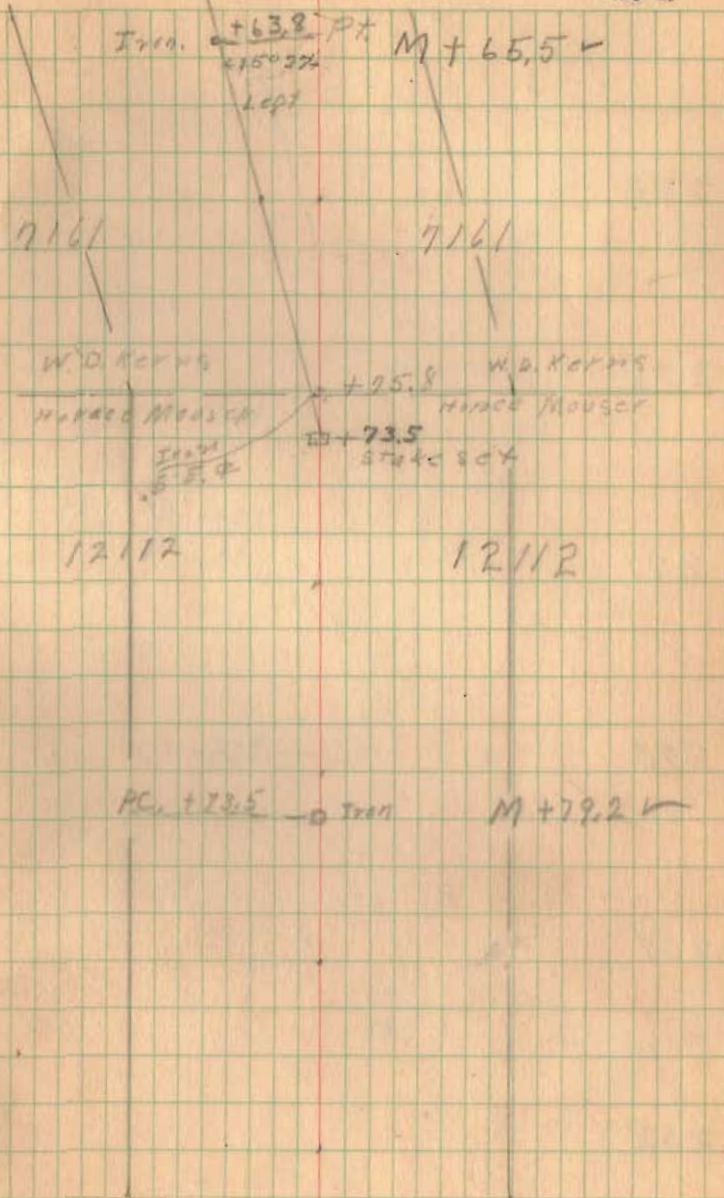 Iron. +63.8 Pt. M + 65.5
<15° 27'
Left
7161 7161
W. D. Kerns W. D. Kerns
+75.8
Horace Mouser Horace Mouser
+73.5
Iron Stake set
12112 12112
P.C. +73.5 Iron M +79.2